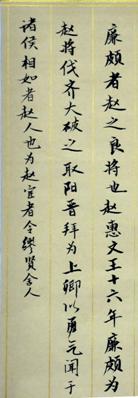 廉颇者赵之良将也赵惠文王十六年廉颇为
赵将伐齐大破之取阳晋拜为上卿以勇气闻于
诸侯相如者赵人也为赵宦者令缪贤舍人